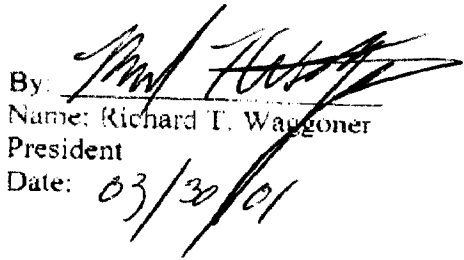 By:
Name: Richard T. Waggoner
President
Date: 03/30/01